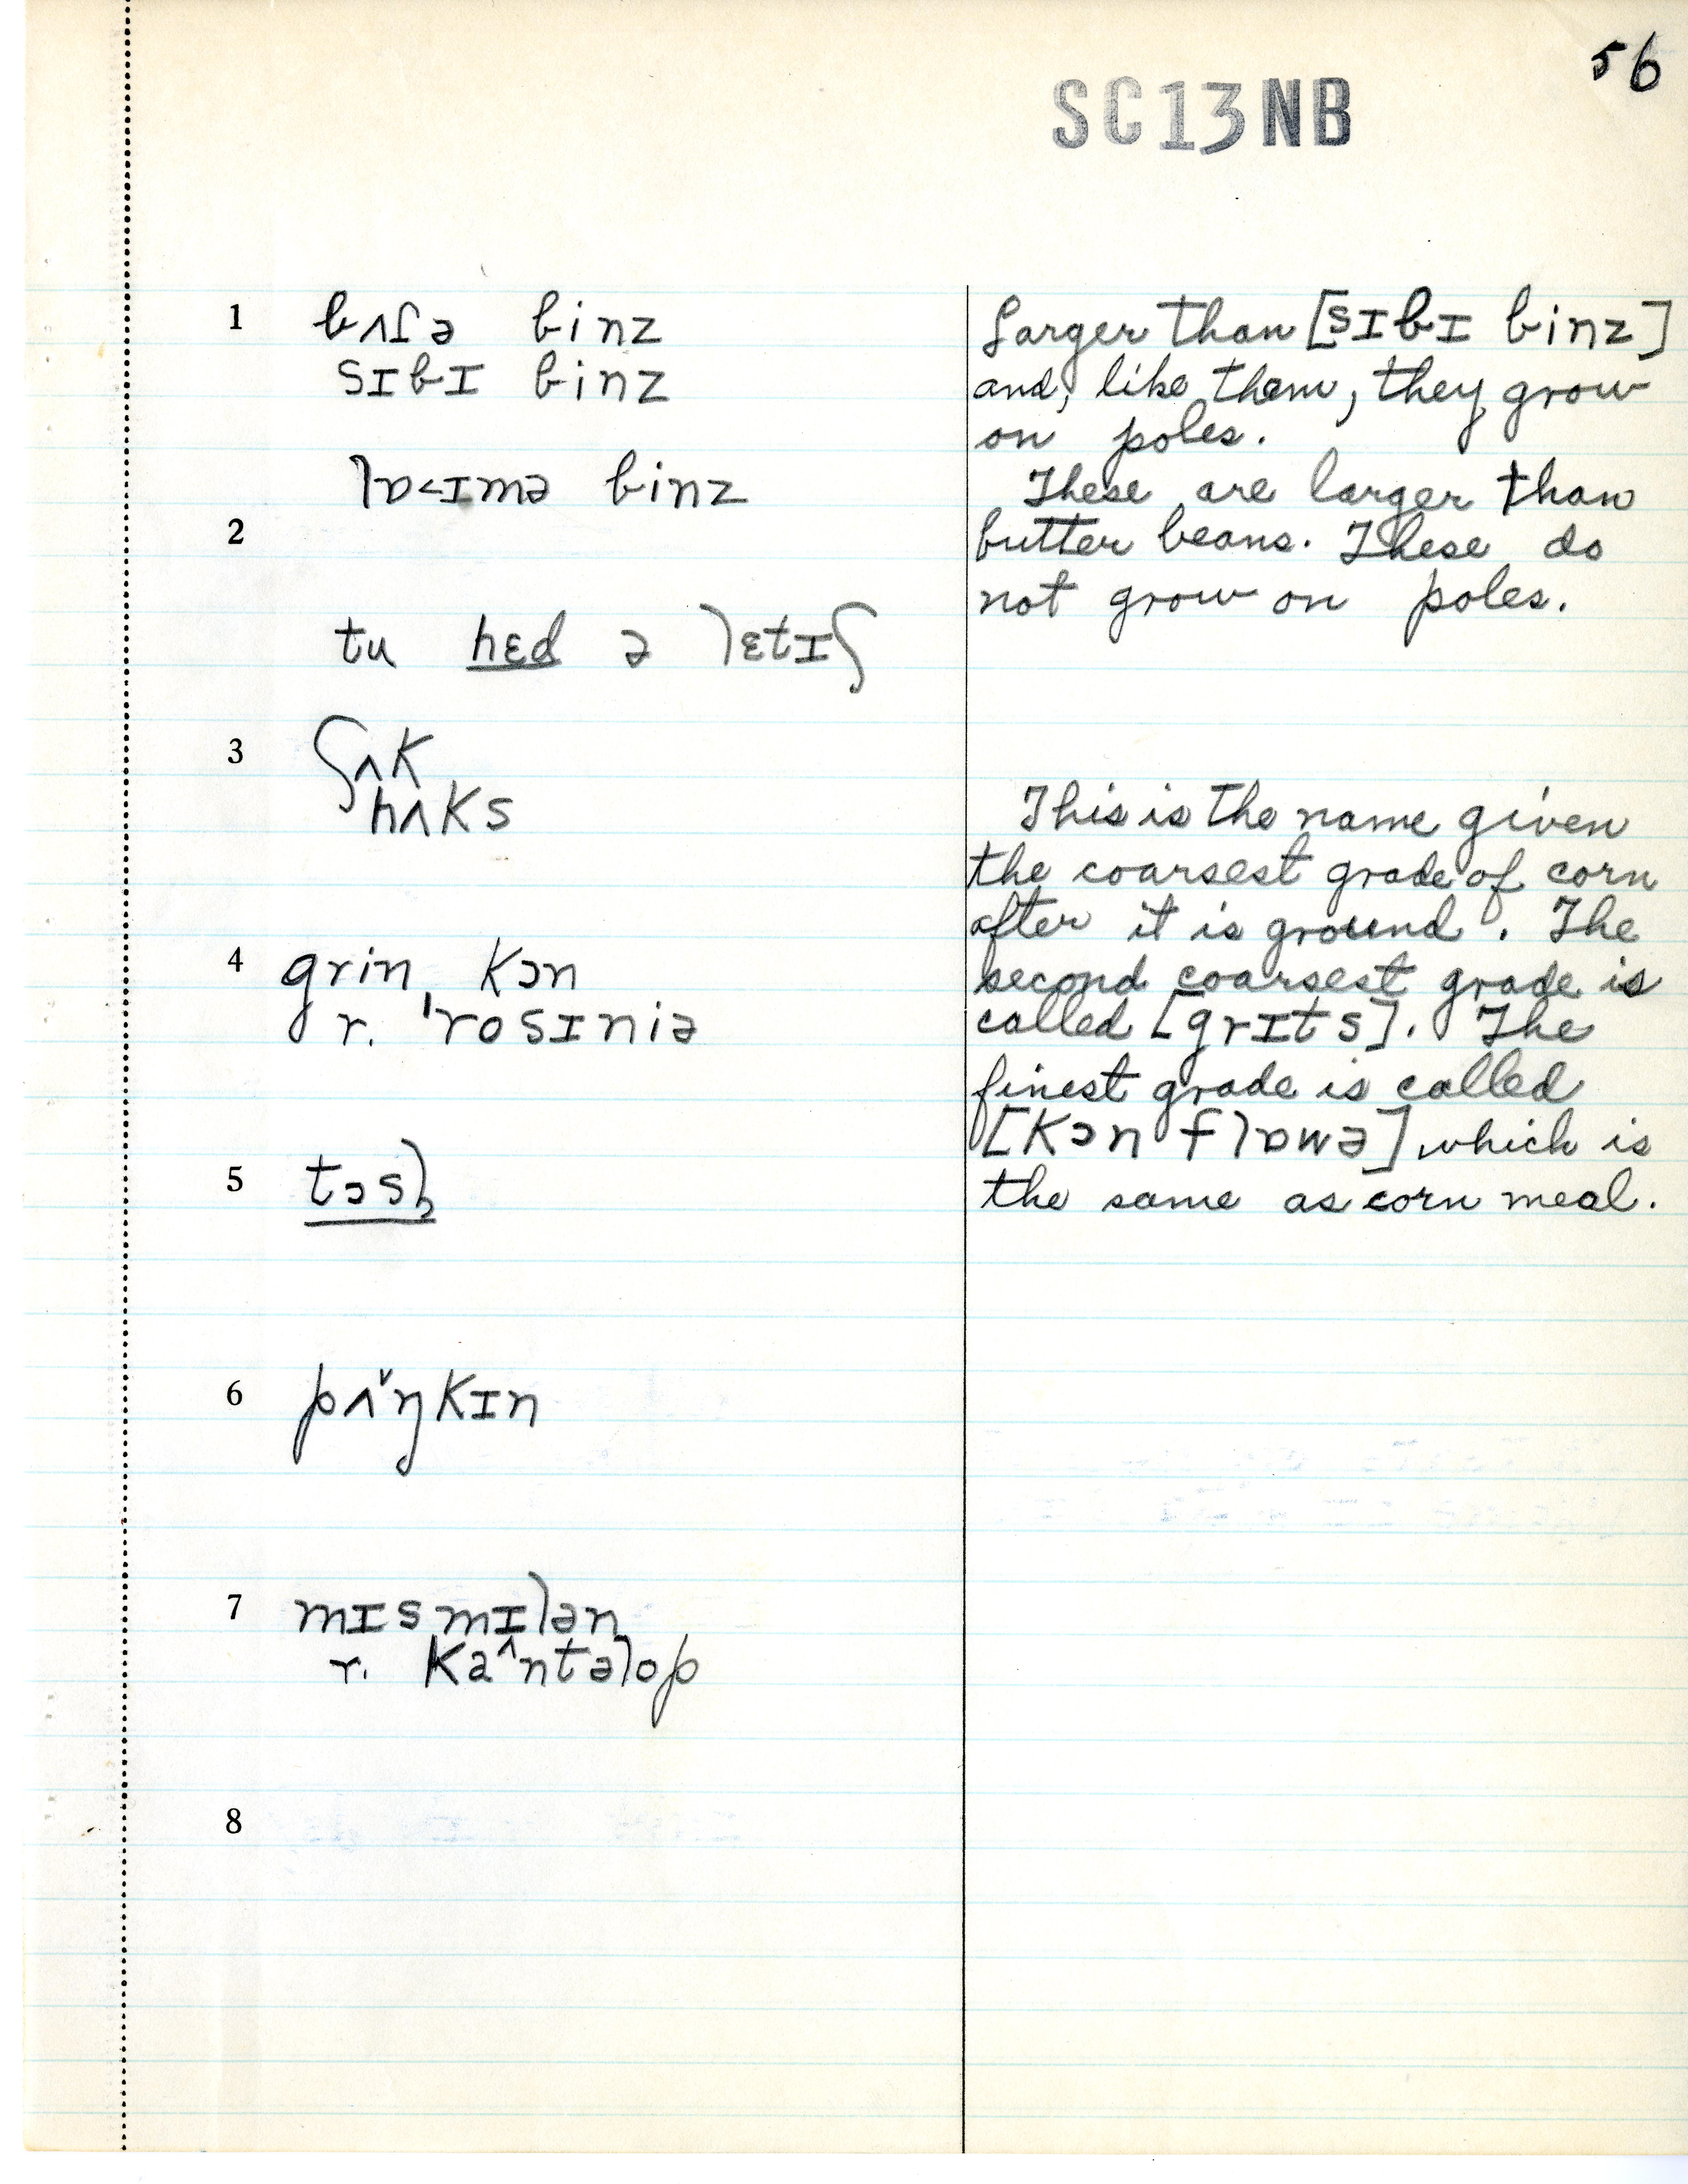 56
SC13NB
1 bʌɾə binz
sɪbɪ binz
lɒ˂ɪmə binz
2
tu hɛd ə lɛtɪʃ
3 ʃʌk
hʌks
4 grin kɔn
r. ˈrosɪniə
5 tɔsl̩
6 pʌ˅ŋkɪn
7 mɪsmɪlən
r. ka˄ntəlop
8
Larger than [sɪbɪ binz]
and, like them, they grow
on poles.
These are larger than
butter beans. These do
not grow on poles.
This is the name given
the coarsest grade of corn
after it is ground. The
second coarsest grade is
called [grɪts]. The
finest grade is called
[kɔn flɒwə], which is
the same as corn meal.